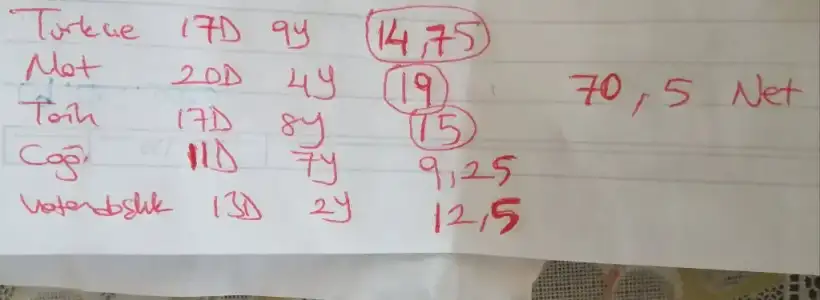 Turkce 17D 9y 14,75
Mat 20D 4y 19 70,5 Net
Tarih 17D 8y 15
Coğ. 11D 7y 9,25
Vatandaşlık 13D 2y 12,5